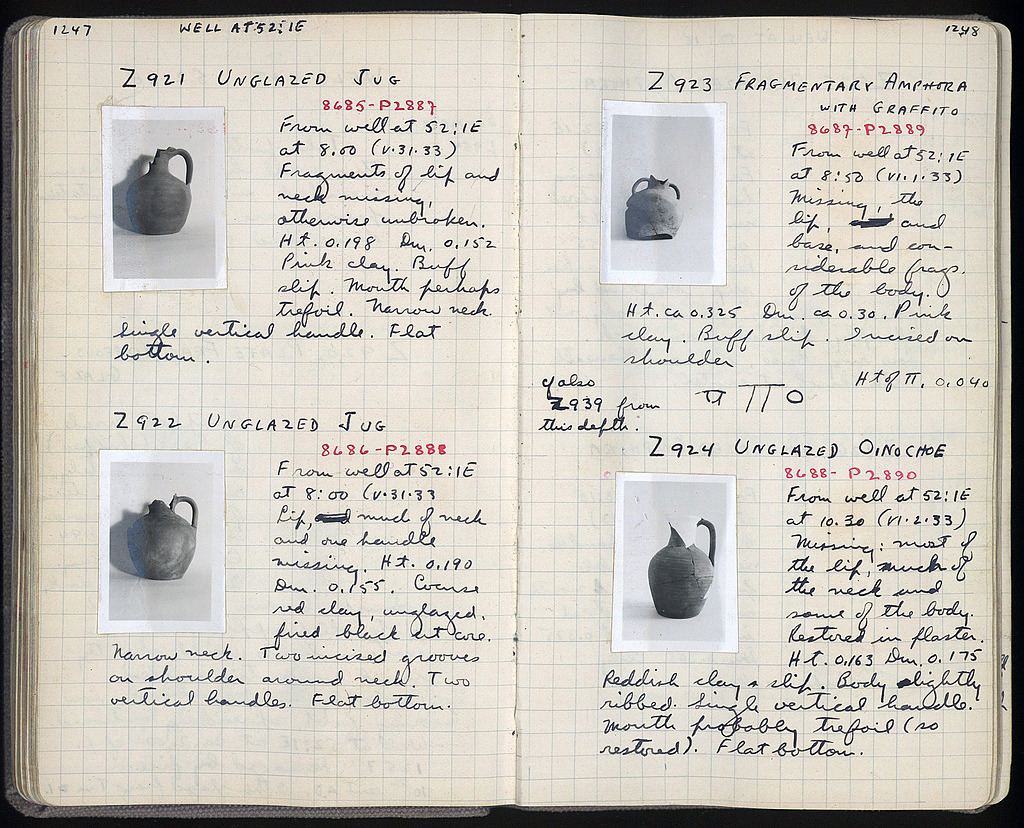 1247
WELL AT 52:1E
Z 921 UNGLAZED JUG
8685-P2887
From well at 52:1E
at 8.00 (V.31.33)
Fragments of lip and
neck missing,
otherwise unbroken.
Ht. 0.198 Dm. 0.152
Pink clay. Buff
slip. Mouth perhaps
trefoil. Narrow neck.
Single vertical handle. Flat
bottom.
Z 922 UNGLAZED JUG
8686-P2888
From well at 52:1E
at 8:00 (V.31.33
Lip, much of neck
and one handle
missing. Ht. 0.190
Dm. 0.155. Coarse
red clay, unglazed,
fired black at core.
Narrow neck. Two incised grooves
on shoulder around neck. Two
vertical handles. Flat bottom.
1248
Z 923 FRAGMENTARY AMPHORA
WITH GRAFFITO
8687-P2889
From well at 52:1E
at 8:50 (VI.1.33)
Missing, the
lip, and
base, and con-
siderable frags.
of the body.
Ht. ca 0.325 Dm. ca 0.30. Pink
clay. Buff slip. Incised on
shoulder
Ht of Π. 0.040
cf also
Z939 from
this depth.
Π Ο
Z 924 UNGLAZED OINOCHOE
8688-P2890
From well at 52:1E
at 10.30 (VI.2.33)
Missing: most of
the lip, much of
the neck and
some of the body.
Restored in plaster.
Ht. 0.163 Dm. 0.175
Reddish clay & slip. Body slightly
ribbed. Single vertical handle.
Mouth probably trefoil (so
restored). Flat bottom.